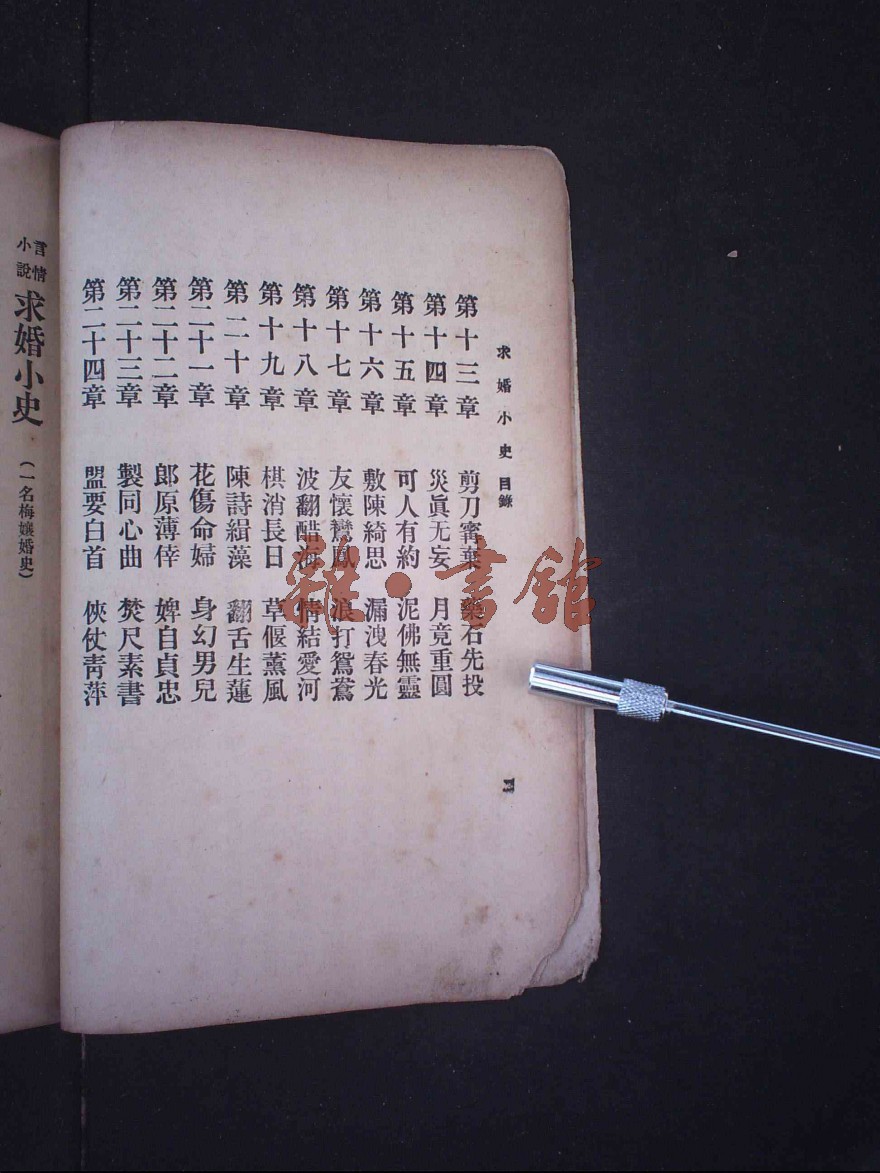 求婚小史 目錄
第十三章 剪刀甯棄 藥石先投
第十四章 災眞无妄 月竟重圓
第十五章 可人有約 泥佛無靈
第十六章 敷陳綺思 漏洩春光
第十七章 友懷鸞鳳 浪打鴛鴦
第十八章 波翻醋海 情結愛河
第十九章 棋消長日 草偃薰風
第二十章 陳詩緝藻 翻舌生蓮
第二十一章 花傷命婦 身幻男兒
第二十二章 郎原薄倖 婢自貞忠
第二十三章 製同心曲 焚尺素書
第二十四章 盟要白首 俠仗靑萍
言情小說 求婚小史 (一名梅孃婚史)
雜·書館